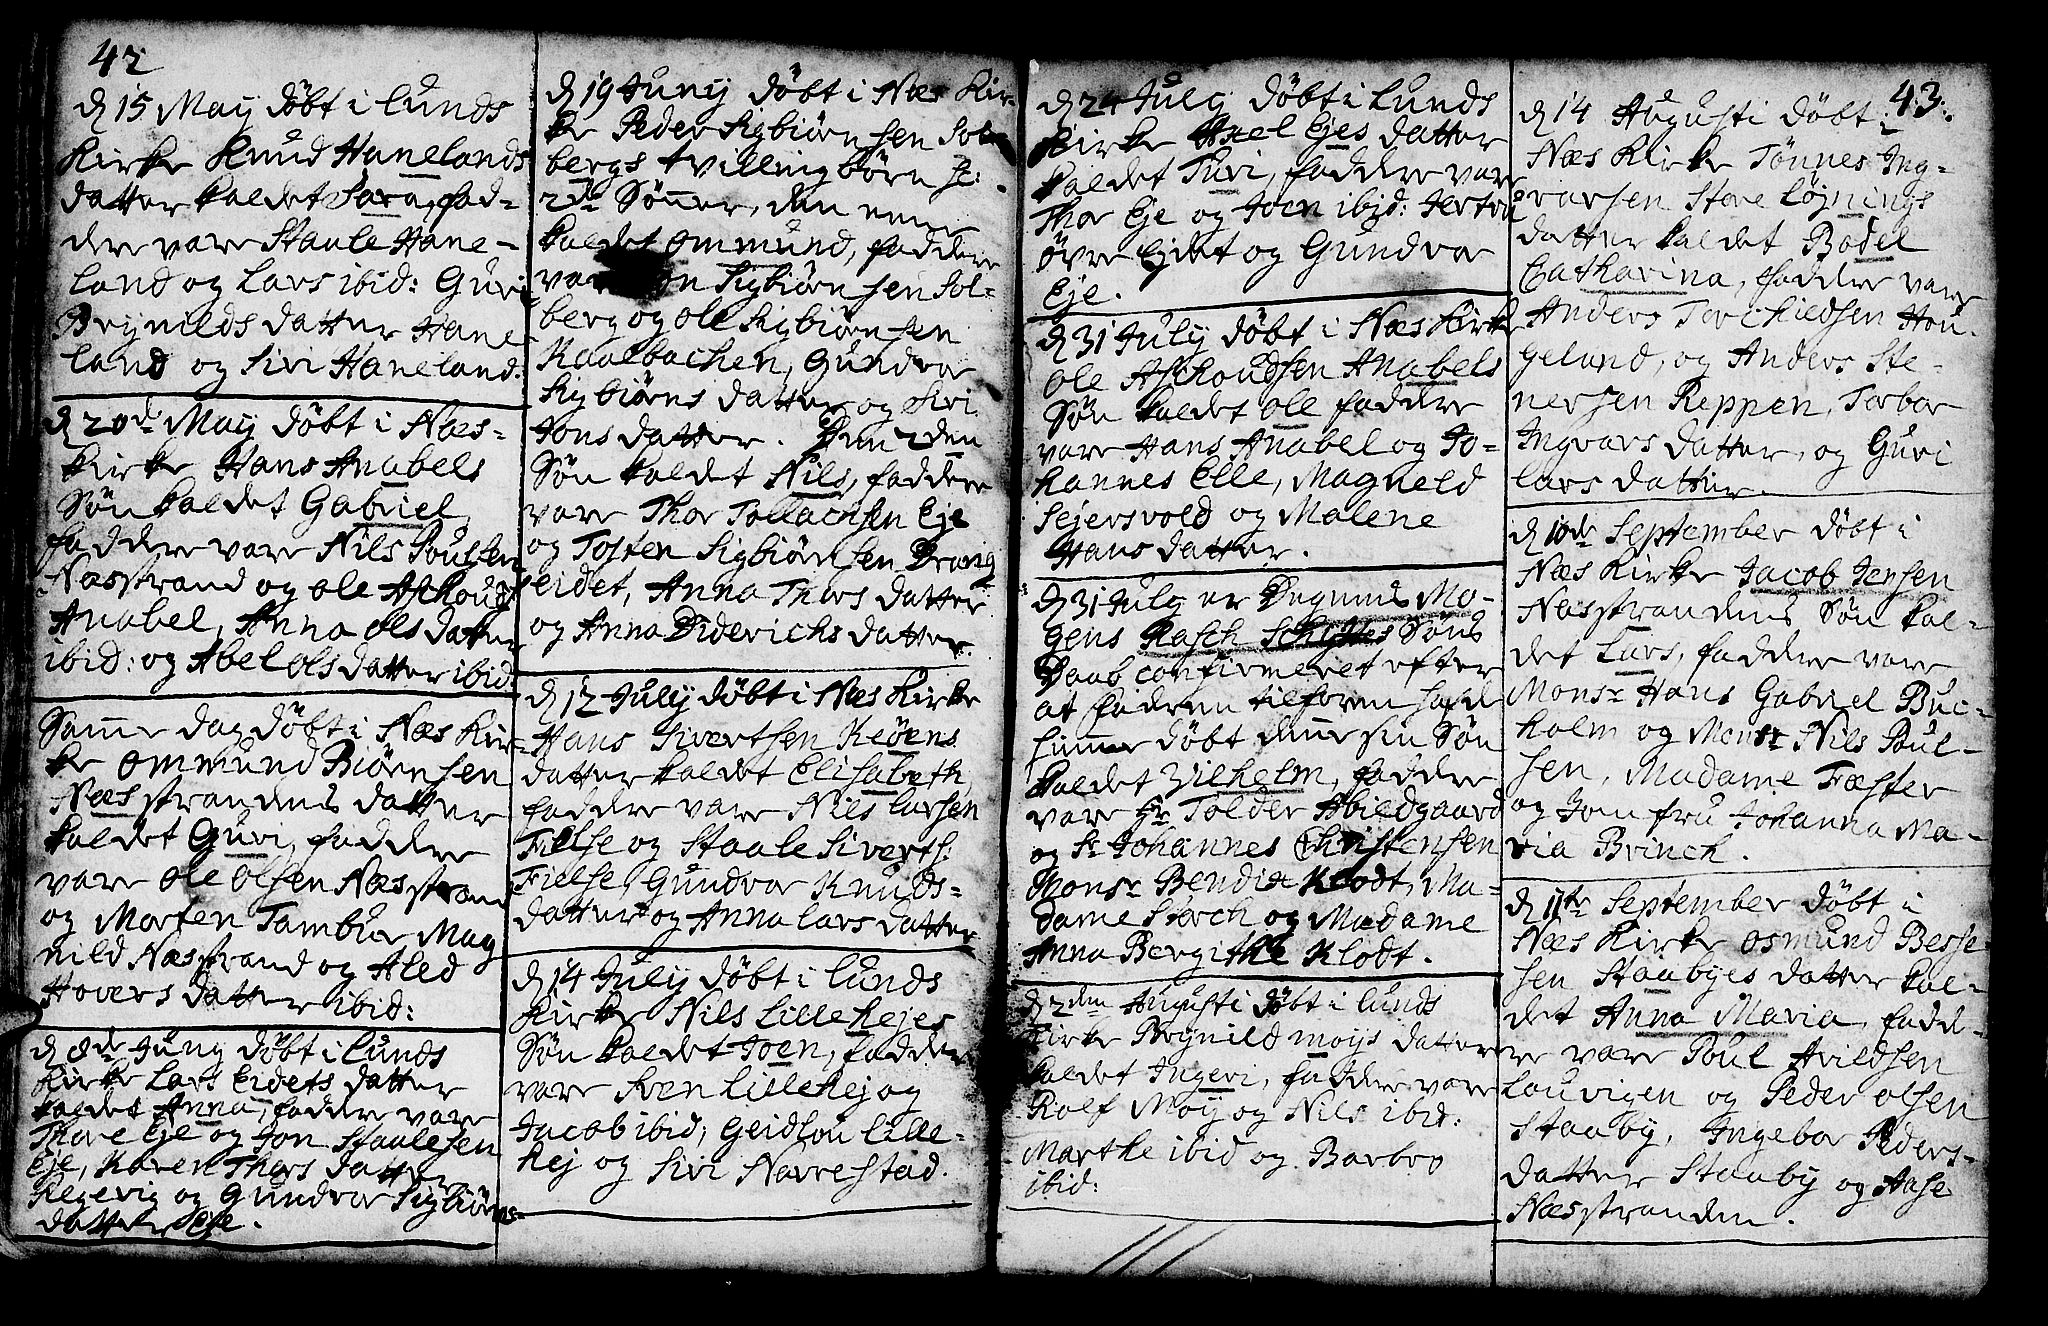 42
d 15 May döbt i Lunds
Kirke Knud Hanelands
datter kaldet Sara, fad-
dere vare Staale Hane-
land og Lars ibid: Guri
Brynilds datter Hane
land og Siri Haneland.
d 20de May döbt i Næs-
kirke Hans Anabels
Sön kaldet Gabriel
faddere vare Nils Poulsen
Næsstrand og Ole Askouds
Anabel, Anna Ols datter
ibid: og Abel Ols datter ibid
Samme dag döbt i Næs Kir-
ke Ommund Biörnsen
Næsstrandens datter
kaldet Guri, faddere
vare Ole Olsen Næsstrand
og Morten Tambur Mag
nild Næsstrand og Aled
Hovers datter ibid:
d 8de Juny döbt i Lunds
Kirke Lars Eidets datter
kaldet Anna, faddere vare
Thore Eje og Jon Staalesen
Eje, Karen Thors datter
Regevig og Gundvor Sigbiörns-
datter Eje.
d 19 Juny döbt i Næs Kir-
ke Peder Sigbiörnsen Sol
bergs tvilling börn
2de Sönner, den ene
kaldet Ommund, faddere
vare Sigbiörnsen Sol-
berg og Ole Sigbiörnsen
Kaalbachen, Gundvor
Sigbiörns datter og Siri
Jons datter. Den 2den
Sön kaldet Nils, faddere
vare Thor Tollachsen Eje
og Tosten Sigbiörnsen Drang
eidet, Anna Thors datter
og Anna Diderichs datter.
d 12 July döbt i Næs Kirke
Hans Sivertsen Keöens
datter kaldet Elisabeth,
faddere vare Nils Larsen
Fielse og Staale Siverts:
Fielse, Gundvor Knuds-
datter og Anna Lars datter
d 14 July döbt i Lunds
Kirke Nils Lille Hejes
Sön kaldet Joen, faddere
vare Sven Lille Hej og
Jacob ibid; Geidlou Lille-
hej og Siri Navrestad.
d 24 July döbt i Lunds
Kirke Axel Ejes datter
kaldet Turi, faddere vare
Thor Eje og Joen ibid: Jertru
övre Ejdet og Gundvor
Eje.
d 31 July döbt i Næs Kirke
Ole Askoudsen Anabels
Sön kaldet Ole faddere
vare Hans Anabel og Jo-
hannes Elle, Magneld
Sejersvold og Malene
Hans datter.
d 31 July er Degnens Mo-
gens Rasch Schyttes Söns
Daab confirmeret efter
at Fadren tilforn hafde
hiemme döbt denne sin Sön
kaldet Vilhelm, faddere
vare Hr Tolder Abildgaard
og Sr Johannes Christensen
Monsr Bendix Klodt, Ma-
dame Storch og Madame
Anna Bergithe Klodt.
d 2den Augusti döbt i Lunds
Kirke Brynild Moys datter
kaldet Ingeri, faddere vare
Rolf Moy og Nils ibid:
Marthe ibid og Barbro
ibid:
43.
d 14 Augusti döbt i
Næs Kirke Tönnes Ing-
varsen Store Löjnings
datter kaldet Bodel
Catharina, faddere vare
Anders Torchiedsen Hou-
geland, og Anders Ste-
nersen Reppen, Torbor
Ingvars datter, og Guri
Lars datter.
d 10de September döbt i
Næs Kirke Jacob Jensen
Næsstrandens Sön kal-
det Lars, faddere vare
Monsr Hans Gabriel Buc-
holm og Monsr Nils Poul-
sen, Madame Fæster
og Jomfru Johanna Ma-
ria Brinch.
d 11te September döbt i
Næs Kirke Osmund Besse
sen Staabyes datter kal-
det Anna Maria, fadd-
re vare Poul Avildsen
Louvigen og Peder Olsen
Staaby, Ingebor Peders-
datter Staaby og Aase
Næsstranden.